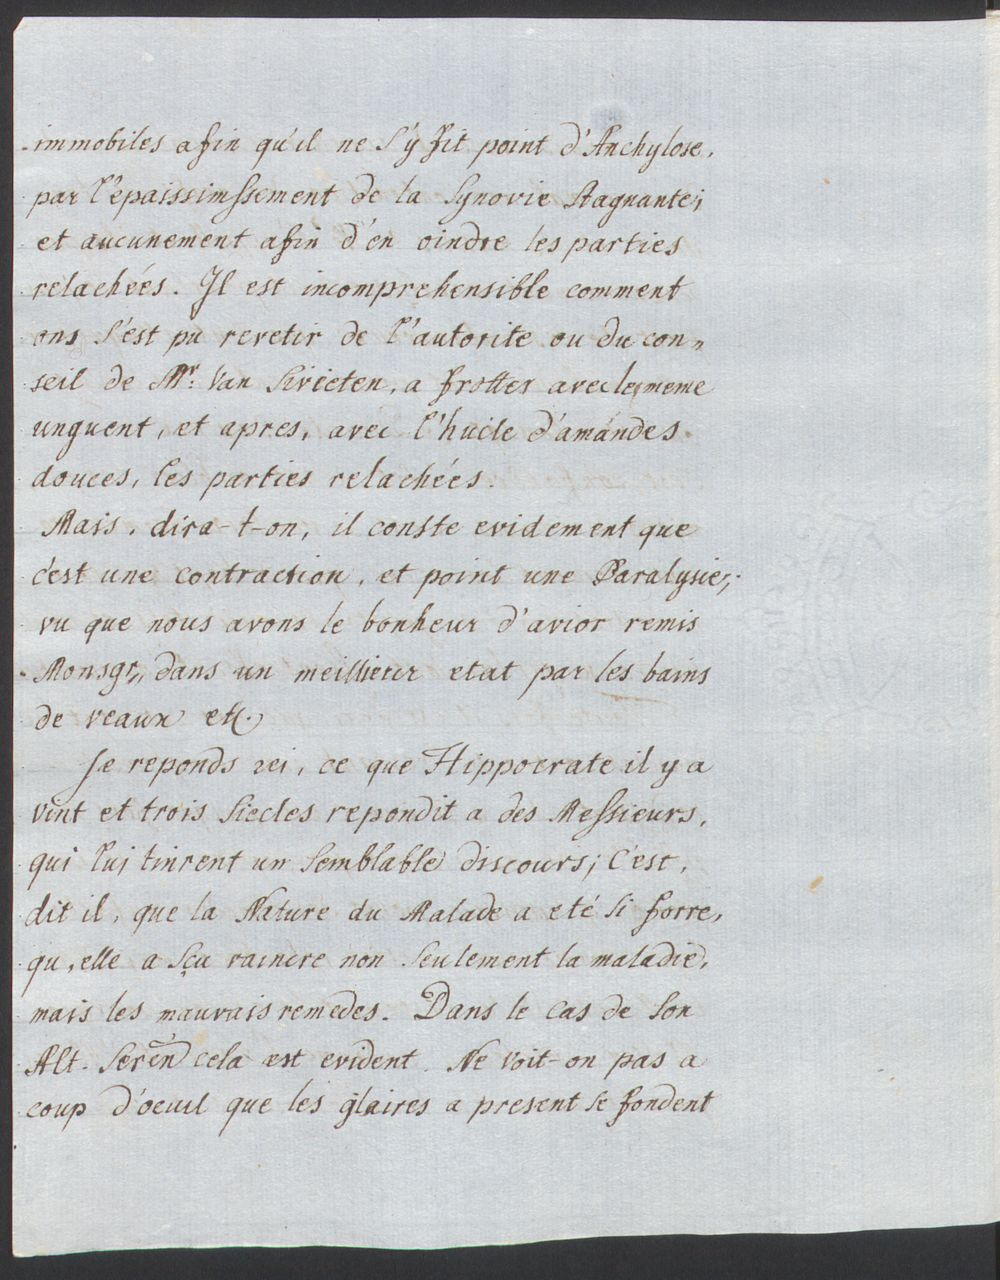 immobiles afin qu'il ne s'y fit point d'Anchylose,
par l'epaissimssement de la Synovie Stagnante;
et aucunement afin d'en oindre les parties
relachées. Il est incomprehensible comment
ons s'est pu revetir de l'autorite ou du con„
seil de Mr. Van Sivieten, a frotter avec le meme
unguent, et apres, avec l'huile d'amandes
douces, les parties relachées
Mais, dira-t-on, il conste evidement que
c'est une contraction, et point une Paralysie,
vu que nous avons le bonheur d'avior remis
Monsgr„ dans un meillieur etat par les bains
de veaux etc.
Je reponds ici, ce que Hippocrate il y a
vint et trois Siecles repondit a des Messieurs,
qui lui tinrent un Semblable discours; C'est,
dit il, que la Nature du Malade a eté si forte,
qu'elle a sçu vaincre non seulement la maladie,
mais les mauvais remedes. Dans le cas de Son
Alt. Seren cela est evident. Ne voit-on pas a
coup d'oeuil que les glaires a present se fondent